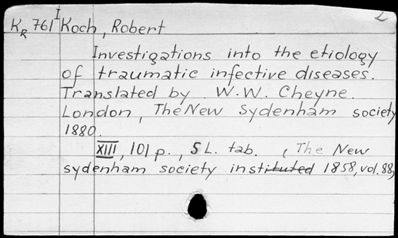 K R 761 I Koch, Robert 2
Investigations into the etiology
of traumatic infective diseases.
Translated by W.W. Cheyne.
London, The New Sydenham society
1880.
XIII, 101 p., 5 L. tab. , The New
sydenham society instituted 1858, vol. 88,